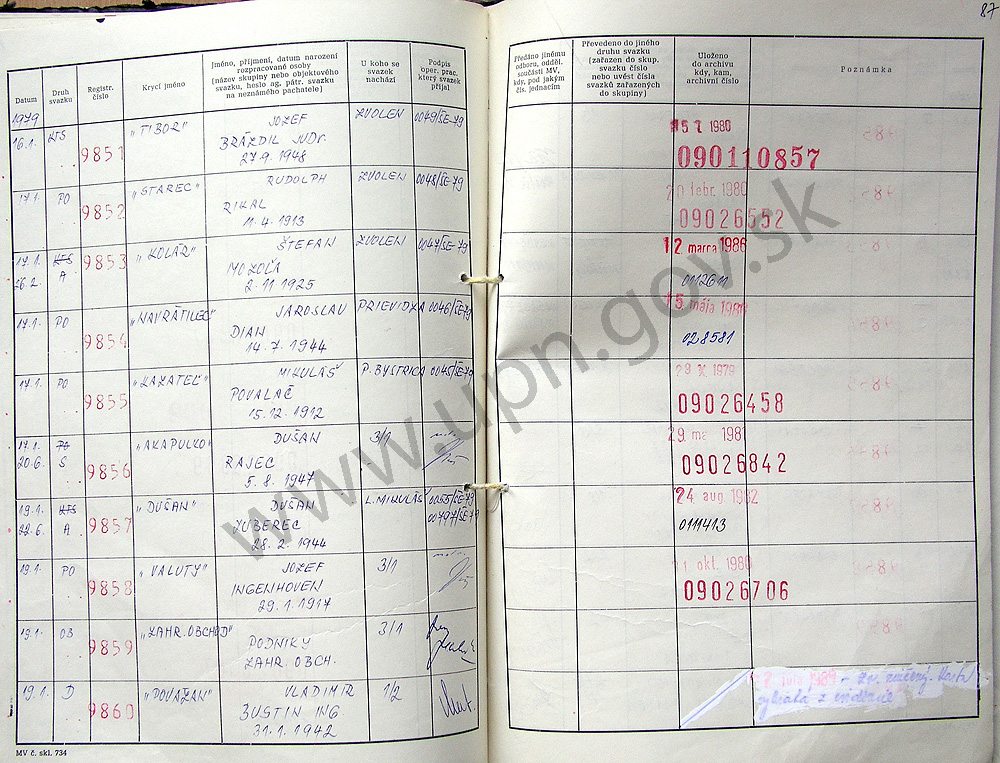 87
Datum
Druh svazku
Registr. číslo
Krycí jméno
Jméno, příjmení, datum narození
rozpracované osoby
(název skupiny nebo objektového
svazku, heslo ag. pátr. svazku
na neznámého pachatele)
U koho se
svazek
nachází
Podpis
oper. prac.
který svazek
přijal
Předáno jinému
odboru, odděl.
součásti MV,
kdy, pod jakým
čís. jednacím
Převedeno do jiného
druhu svazku
(zařazen do skup.
svazku číslo
nebo uvést čísla
svazků zařazených
do skupiny)
Uloženo
do archivu
kdy, kam,
archivní číslo
Poznámka
1979
16.1. KTS 9851 "TIBOR" JOZEF ZVOLEN 0049/SE-79
BRÁZDIL JUDr.
27.9.1948
1980
090110857
17.1. PO 9852 "STAREC" RUDOLPH ZVOLEN 0048/SE-79
RIKAL
11.4.1913
20 febr. 1980
09026552
17.1. KTS 9853 "KOLÁR" ŠTEFAN ZVOLEN 0047/SE-79
26.2. A MOZOĽA
2.11.1925
12 marca 1986
0112611
17.1. PO 9854 "NAVRÁTILEC" JAROSLAV PRIEVIDZA 0046/SE-79
DIAN
14.7.1944
15 mája
028581
17.1. PO 9855 "KAZATEĽ" MIKULÁŠ P. BYSTRICA 0045/SE-79
POVALAČ
15.12.1912
1979
09026458
17.1. PO 9856 "AKAPULKO" DUŠAN 3/1
20.6. S RAJEC
5.8.1947
1981
09026842
19.1. KTS 9857 "DUŠAN" DUŠAN L. MIKULÁŠ 0055/SE-79
22.6. A ZUBEREC 00797/SE-79
28.2.1944
24 aug. 1982
0111413
19.1. PO 9858 "VALUTY" JOZEF 3/1
INGENHOVEN
29.1.1917
okt. 1980
09026706
19.1. OB 9859 "ZAHR. OBCHOD" 3/1
PODNIKY
ZAHR. OBCH.
19.1. D 9860 "POVAŽAN" VLADIMIR 1/2
ZUSTIN ING
31.1.1942
1989 - zv. zničený. Karta
vybratá z evidencie
MV č. skl. 734
www.upn.gov.sk